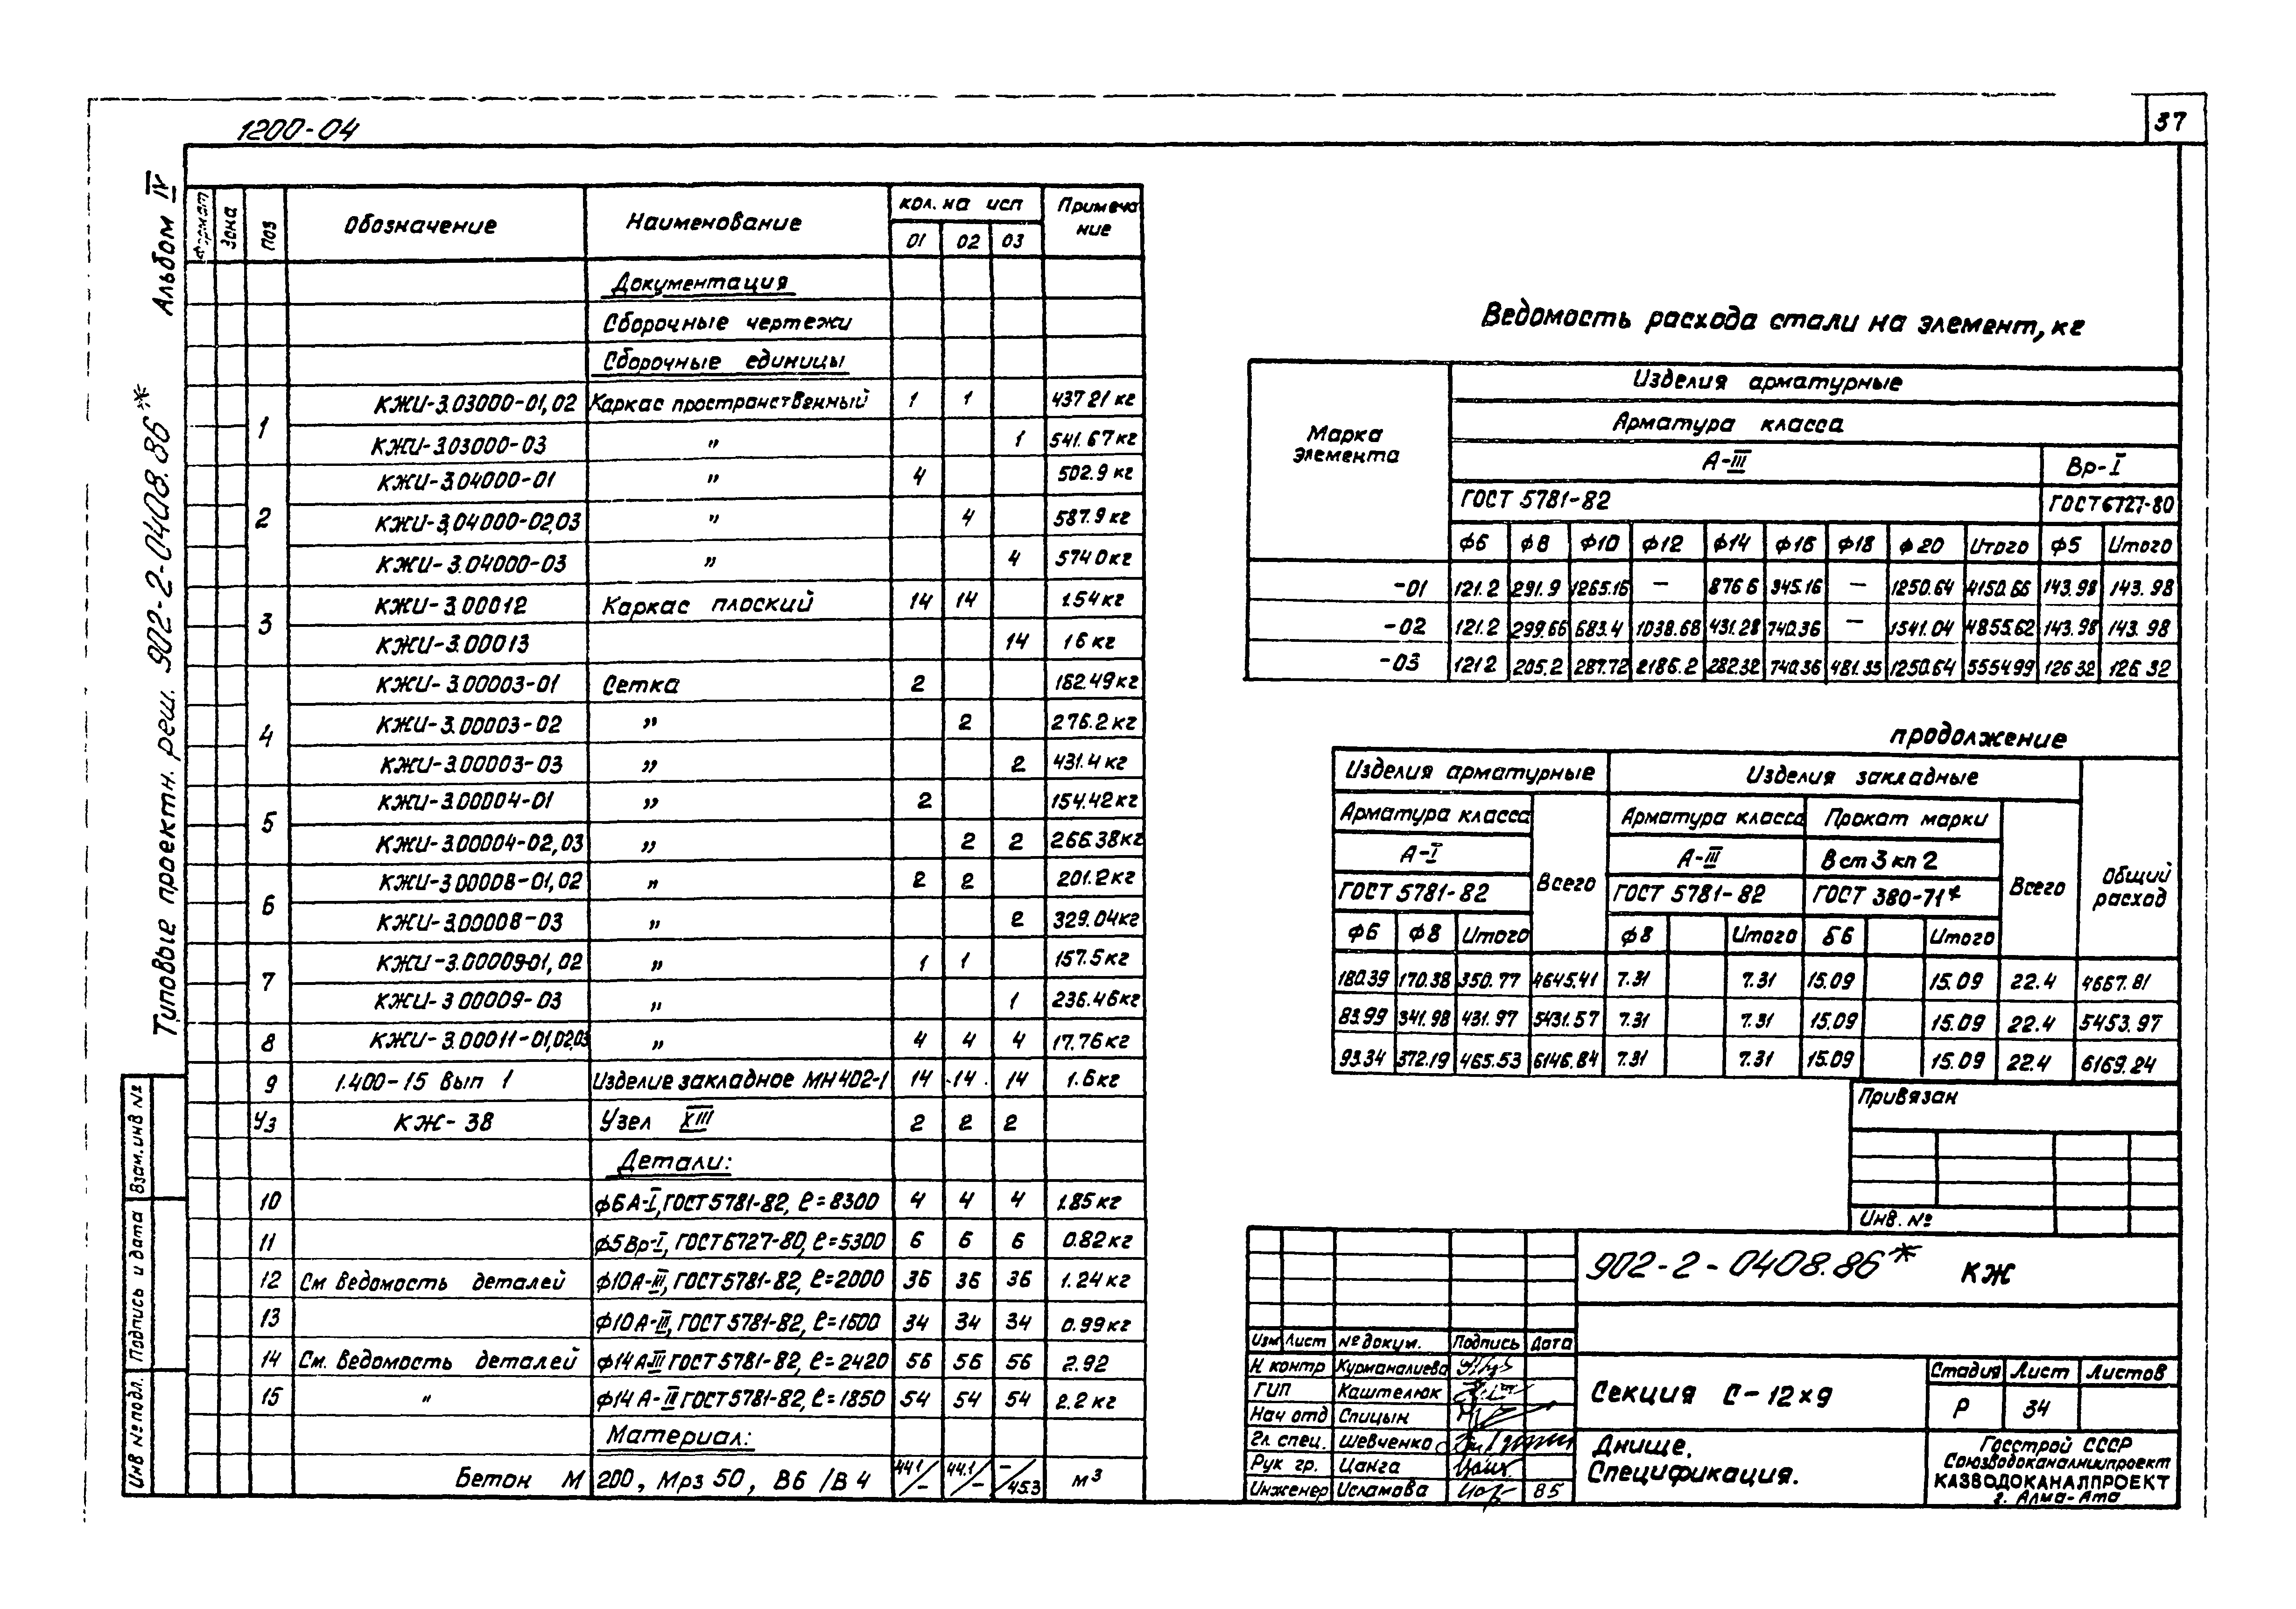 1200-04
37
Альбом IV
Типовые проектн. реш. 902-2-0408.86*
Взам.инв №
Подпись и дата
Инв № подл.
Формат Зона Поз Обозначение Наименование кол. на исп Примечание
01 02 03
Документация
Сборочные чертежи
Сборочные единицы
1 КЖИ-3.03000-01,02 Каркас пространственный 1 1 437 21 кг
КЖИ-3.03000-03 " 1 541.67кг
2 КЖИ-3.04000-01 " 4 502.9 кг
КЖИ-3.04000-02,03 " 4 587.9 кг
КЖИ-3.04000-03 " 4 574 0кг
3 КЖИ-3.00012 Каркас плоский 14 14 1.54кг
КЖИ-3.00013 14 1 6 кг
4 КЖИ-3.00003-01 Сетка 2 162.49кг
КЖИ-3.00003-02 " 2 276.2кг
КЖИ-3.00003-03 " 2 431.4 кг
5 КЖИ-3.00004-01 " 2 154.42кг
КЖИ-3.00004-02,03 " 2 2 266.38кг
6 КЖИ-3 00008-01,02 " 2 2 201.2кг
КЖИ-3.00008-03 " 2 329.04кг
7 КЖИ-3.00009-01,02 " 1 1 157.5кг
КЖИ-3 00009-03 " 1 236.46кг
8 КЖИ-3.00011-01,02,03 " 4 4 4 17.76кг
9 1.400-15 Вып 1 Изделие закладное МН402-1 14 14 14 1.6кг
У3 КЖ-38 Узел XIII 2 2 2
Детали:
10 ф6А-I, ГОСТ 5781-82, ℓ=8300 4 4 4 1.85кг
11 ф5Вр-I, ГОСТ6727-80, ℓ=5300 6 6 6 0.82кг
12 См Ведомость деталей ф10А-III, ГОСТ5781-82, ℓ=2000 36 36 36 1.24кг
13 ф10А-III, ГОСТ 5781-82, ℓ=1600 34 34 34 0.99кг
14 См. Ведомость деталей ф14АIII ГОСТ 5781-82, ℓ=2420 56 56 56 2.92
15 " ф14 А-III ГОСТ5781-82, ℓ=1850 54 54 54 2.2 кг
Материал:
Бетон М 200, Мрз 50, В6 /В 4 44.1/- 44.1/- -/45.3 м³
Ведомость расхода стали на элемент, кг
Марка элемента Изделия арматурные
Арматура класса
А-III Вр-I
ГОСТ 5781-82 ГОСТ6727-80
ф6 ф8 ф10 ф12 ф14 ф16 ф18 ф20 Итого ф5 Итого
-01 121.2 291.9 1265.16 — 876 6 345.16 — 1250.64 4150.66 143.98 143.98
-02 121.2 299.66 683.4 1038.68 431.28 740.36 — 1541.04 4855.62 143.98 143.98
-03 121 2 205.2 287.72 2186.2 282.32 740.36 481.35 1250.64 5554.99 126 32 126 32
продолжение
Изделия арматурные Изделия закладные Общий расход
Арматура класса Всего Арматура класса Прокат марки Всего
А-I А-III В ст 3 кп 2
ГОСТ 5781-82 ГОСТ 5781-82 ГОСТ 380-71*
ф6 ф8 Итого ф8 Итого δ6 Итого
180.39 170.38 350.77 4645.41 7.31 7.31 15.09 15.09 22.4 4667.81
89.99 341.98 431.97 5431.57 7.31 7.31 15.09 15.09 22.4 5453.97
93.34 372.19 465.53 6146.84 7.31 7.31 15.09 15.09 22.4 6169.24
Привязан
Инв. №
902-2-0408.86* КЖ
Изм Лист № докум. Подпись Дата
Н контр Курманалиева
ГИП Каштелюк
Нач отд Спицын
Гл. спец. Шевченко
Рук гр. Цанга
Инженер Исламова 85
Секция С-12×9
Стадия Лист Листов
Р 34
Днище.
Спецификация.
Госстрой СССР
Союзводоканалниипроект
КАЗВОДОКАНАЛПРОЕКТ
г. Алма-Ата